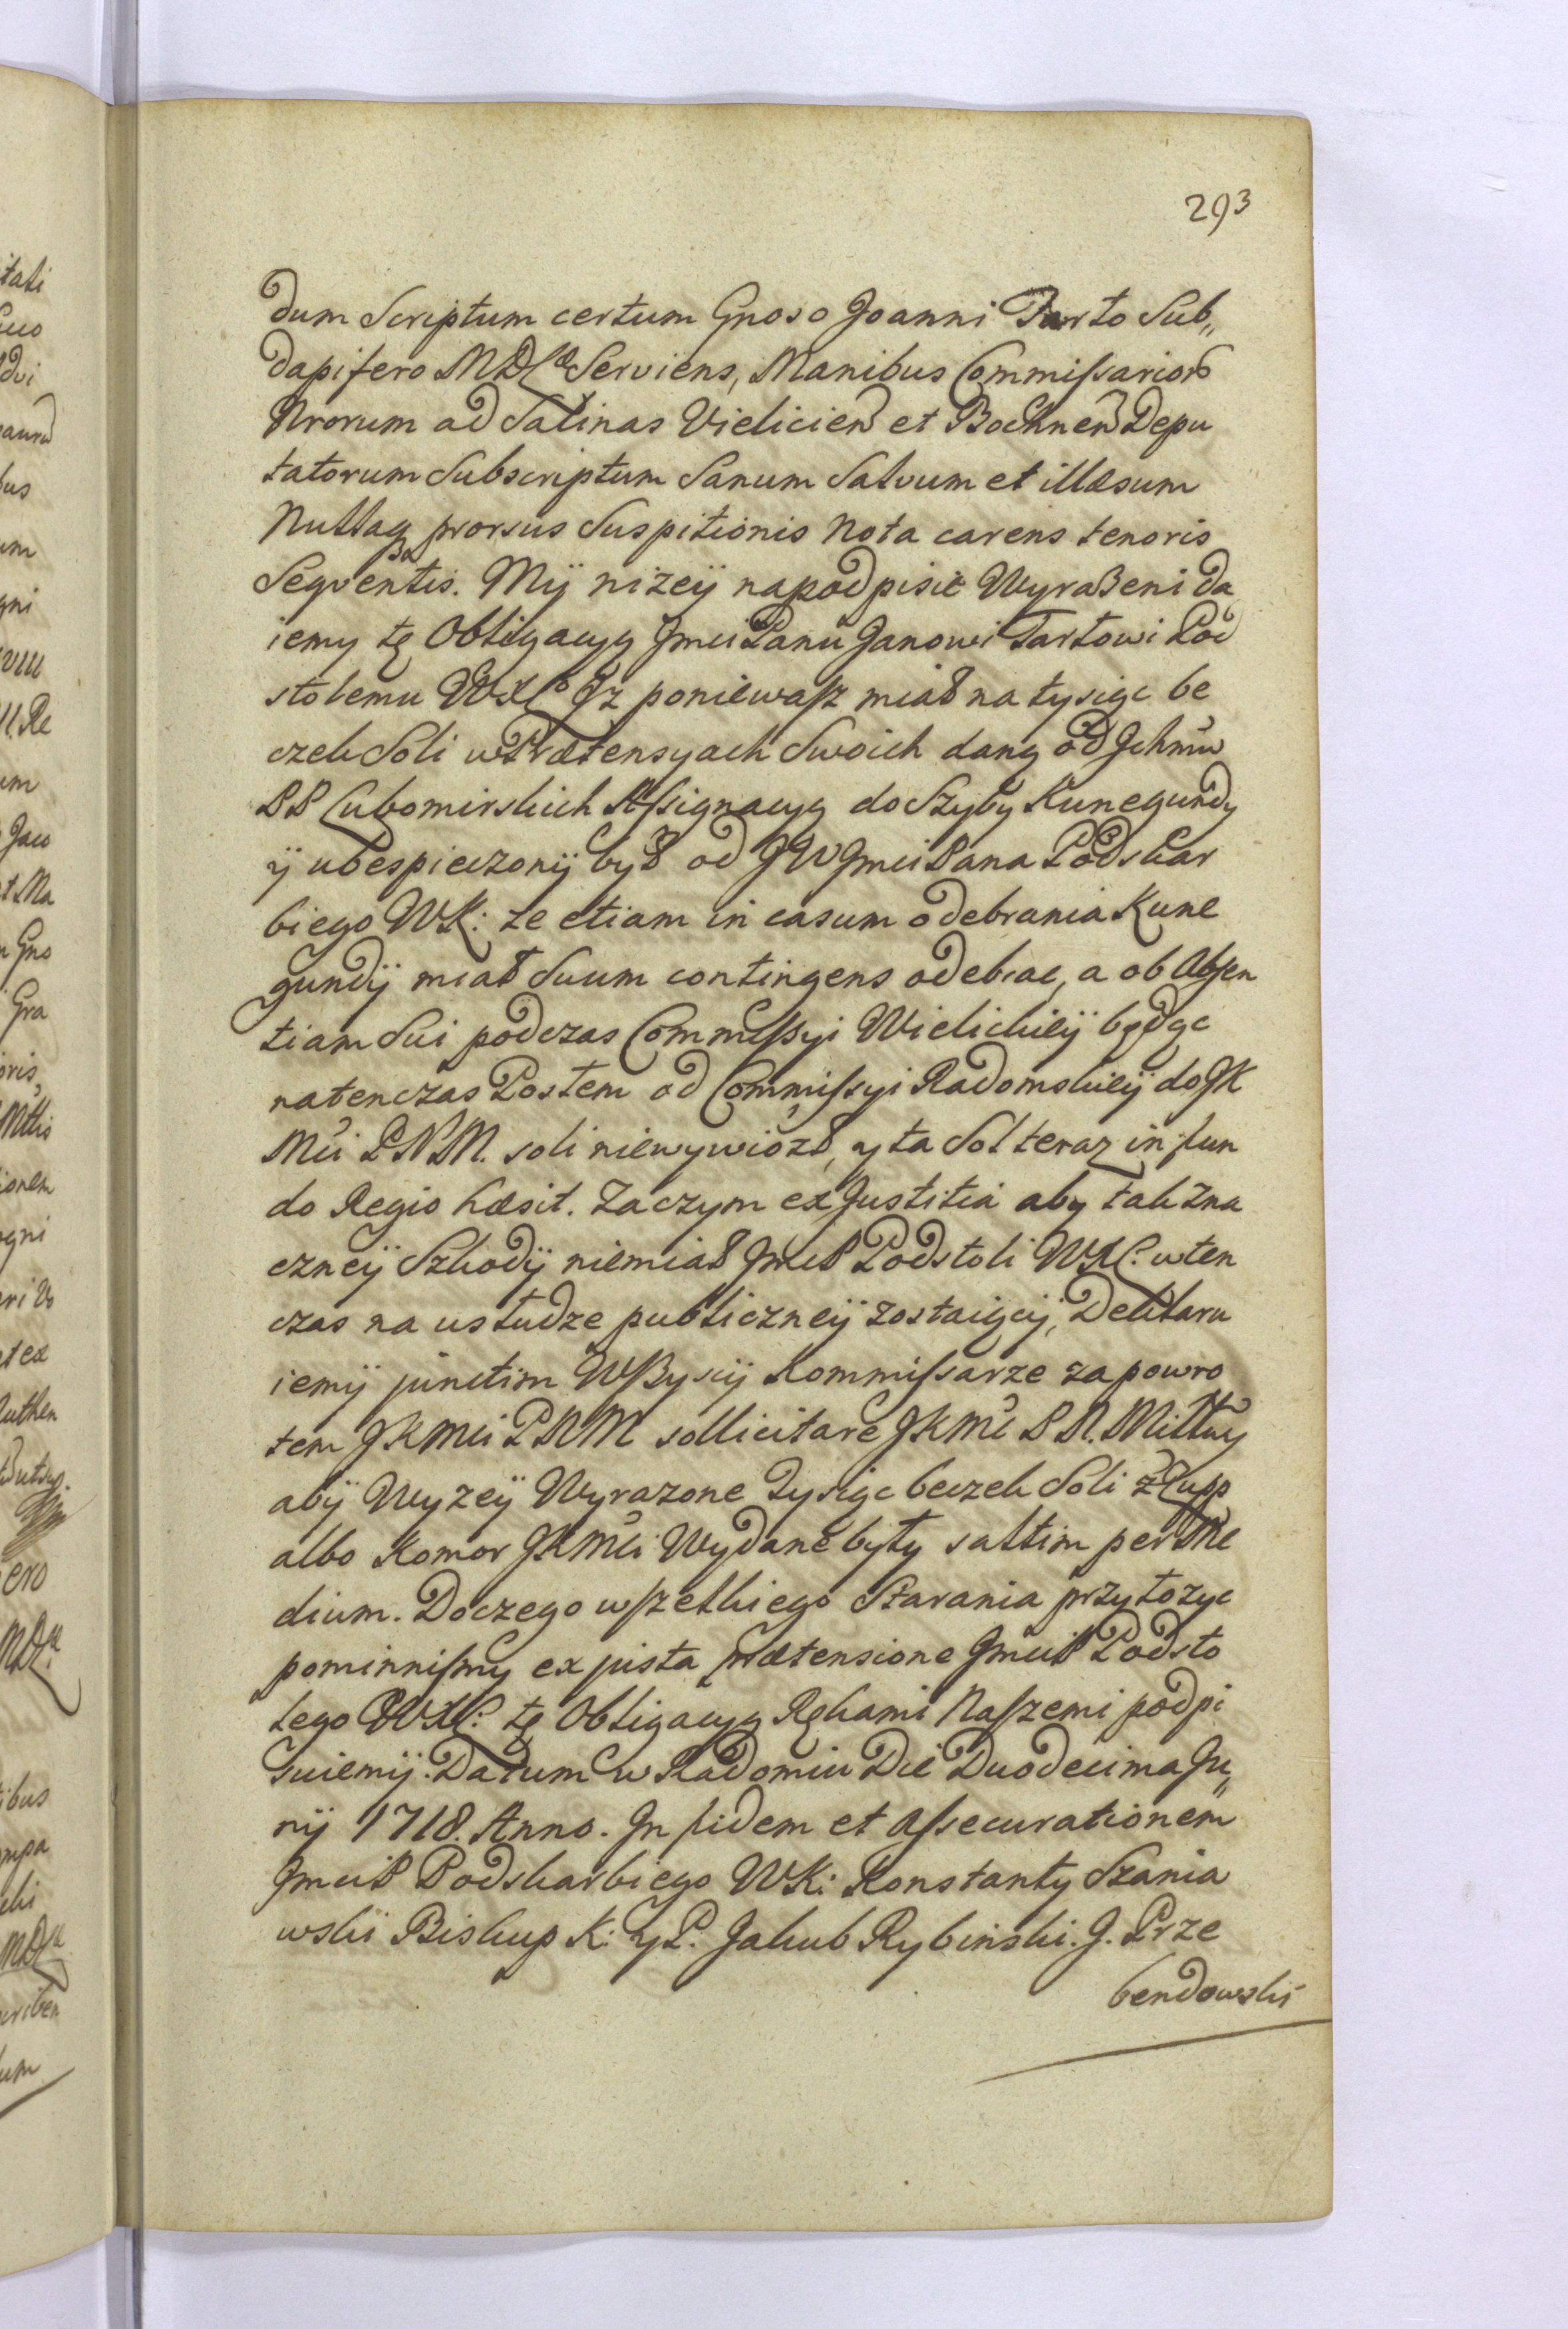 293
dum Scriptum certum Gnoso Joanni Tarto Sub„
dapifero MDL Serviens, Manibus Commissarior
Nrorum ad Salinas Vielicien et Bochnen Depu
tatorum Subscriptum Sanum Salvum et illæsum
Nullaq prorsus Suspitionis Nota carens tenoris
Seqventis. Mÿ nizeÿ napodpisie Wyrażeni da
iemy tę Obligacyą Jmci Panu Janowi Tarłowi Pod
stolemu WXL Jz poniewasz miał na tysiąc be
czek Soli wPrætensyach Swoich daną od Jchmw
PP Lubomirskich Assignacyą do Szyby Kunegundy
ÿ ubespieczonÿ był od JWJmci Pana Podskar
biego WK: że etiam in casum odebrania Kune
gundÿ miał Suum contingens odebrac, a ob Absen
tiam Sui podczas Commissyi Wielickieÿ będąc
natenczas Posłem od Commissyi Radomskieÿ do JK
Mci PNM. soli niewywiozł, y ta Sol teraz in fun
do Regio hæsit. Zaczym ex Justitia aby tak zna
czneÿ Szkodÿ niemiał JmcP Podstoli WXL. wten
czas na usłudze publiczneÿ zostaiącÿ, Deklaru
iemÿ junctim Wszyscÿ Kommissarze za powro
tem JKMci PNM sollicitare JKMć P N. Miłłwy
abÿ Wyzeÿ Wyrazone Tysiąc beczek Soli z Zupp
albo Komor JKMci Wydane były saltim per Me
dium. Doczego wszelkiego Starania przyłozyc
powinnismy ex justa prætensione JmciP Podsto
lego WXL: tę Obligacyą Rękami Naszemi podpi
suiemÿ. Datum w Radomiu Die Duodecima Ju„
nÿ 1718. Anno. Jn fidem et Assecurationem
JmciP Podskarbiego WK: Konstanty Szania
wski Biskup K: y P. Jakub Rybinski. J. Prze
bendowski